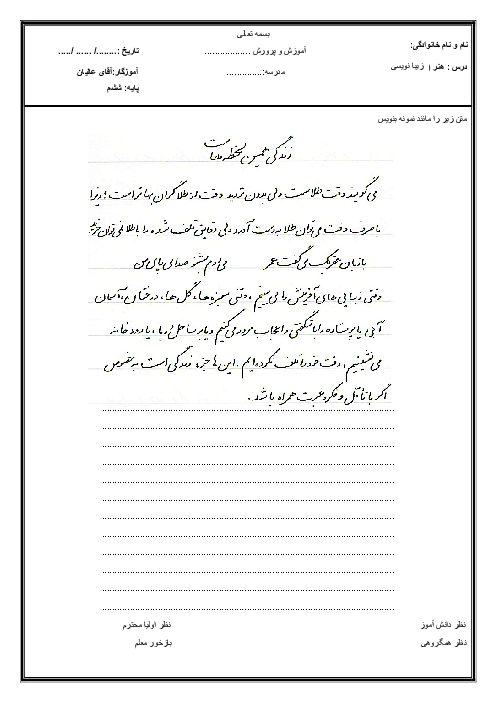 بسمه تعالی
نام و نام خانوادگی:
آموزش و پرورش ..................
تاریخ :......../ ...... /.....
درس : هنر ( زیبا نویسی
مدرسه:..............
آموزگار:آقای عالیان
پایه: ششم
متن زیر را مانند نمونه بنویس
زندگی همین لحظه هاست
می گویند وقت طلاست ولی بدون تردید وقت از طلا گران بهاتر است ؛ زیرا
با صرف وقت می توان طلا به دست آورد ولی دقایق تلف شده را با طلا نمی توان خرید
با زبان عقربک می گفت عمر می روم بشنو صدای پای من
وقتی زیبایی های آفرینش را می بینیم ، وقتی سبزه ها ، گل ها ، درختان ، آسمان
آبی یا پرستاره را با شگفتی و اعجاب مرور می کنیم و یا بر ساحل دریا ، یا رودخانه
می نشینیم ، وقت خود را تلف نکرده ایم . این ها جزء زندگی است به خصوص
اگر با تأمّل و فکر و عبرت همراه باشد .
نظر دانش آموز
نظر اولیا محترم
نظر همگروهی
بازخور معلم